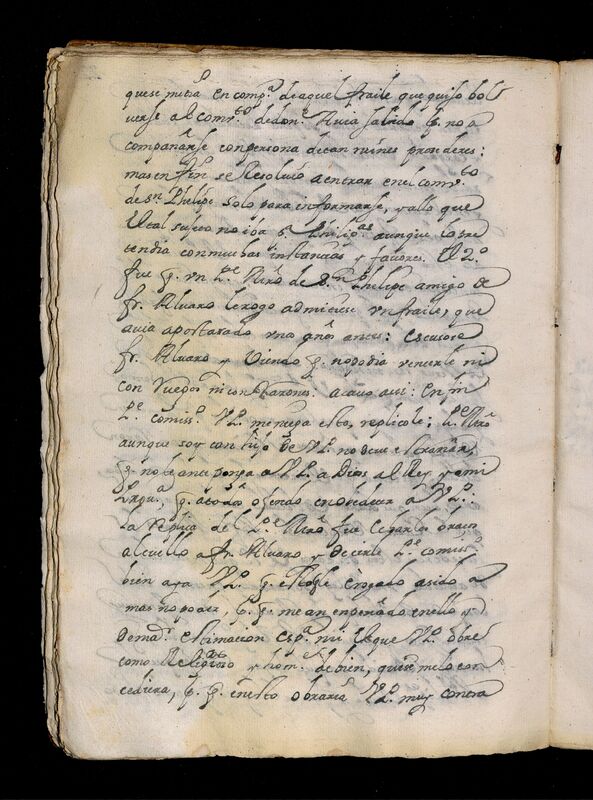 que se metia en comp.ª de aquel fraile que quiso bol
verse al comv.to de don.e Avia salido p.r no a
compañarse con persona de tan ruines procederes:
mas en fin se Resolvio a entrar en el comv.to
de Sn Phelipe solo para informarse, y allo que
el tal sujeto no iva a Philip.as aunque lo pre
tendia con muchas instancias y favores. El 2.º
fue q. un P.e Mrõ de Sn Phelipe amigo de
fr. Alvaro le rogo admitiese un fraile, que
avia apostatado unos años antes: escusose
fr. Alvaro y Viendo q. no podia vencerle ni
con Ruegos ni con Raçones acavo asi: En fin
P.e comiss.º V.P. me niega esto, replicole: P.e Mrõ
aunque soy con hijo de V.P. no deve estrañar,
q. no le anteponga a V.P. a Dios, al Rey y a mi
Prov.ª, q. a todos ofendo en obedecer a V.P.
La Replica del P.e Mrõ fue hecharle los braços
al cuello a fr. Alvaro y decirle P.e comiss.º
bien aya V.P. q. esto se lo e rogado asido a
mas no poder, p.r q. me an empeñado en ello y
demaᵈ. estimacion esp.ª mi el que V.P. obre
como Religioso y hom.e de bien, que si me lo con
cediera, p.r q. en esto obraria V.P. muy contra